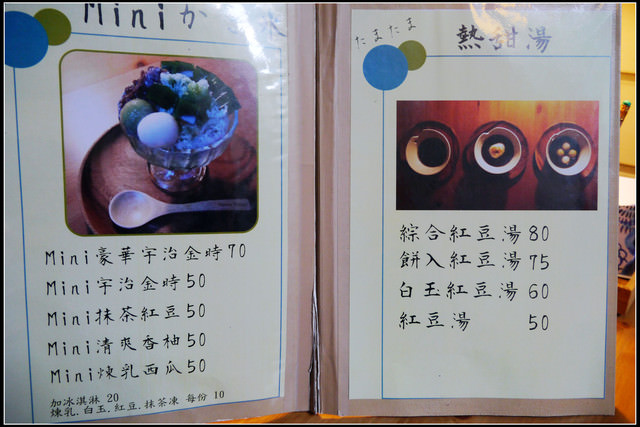 Miniかき氷
Mini豪華宇治金時70
Mini宇治金時50
Mini抹茶紅豆50
Mini清爽香柚50
Mini煉乳西瓜50
加冰淇淋 20
煉乳.白玉.紅豆.抹茶凍 每份 10
たまたま
熱甜湯
綜合紅豆湯80
餅入紅豆湯75
白玉紅豆湯60
紅豆湯 50